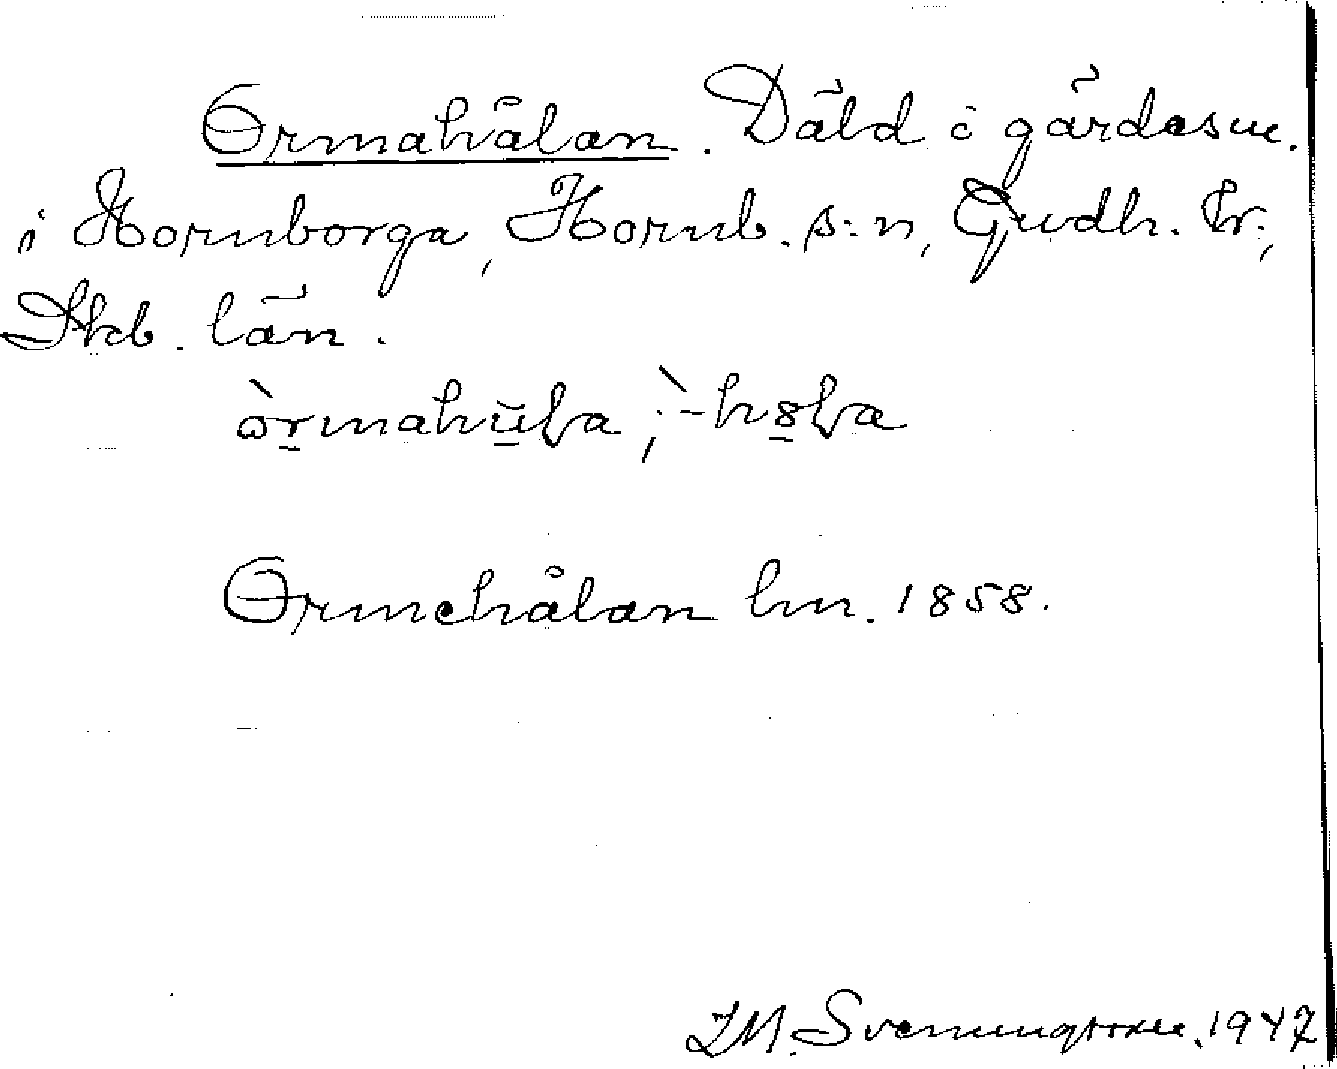 Ormahålan. Däld i gärdesme.
i Hornborga, Hornb. s:n, Gudh. hr.,
Skb. län.
òrmahu̠ɫa, `-hɞ̠ɫa
Ormehålan hm. 1858.
I.M. Svenningsson. 1947